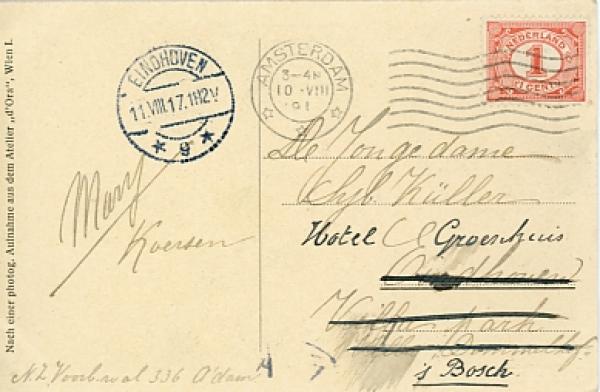 Nach einer photog. Aufnahme aus dem Atelier „d'Ora", Wien I.
EINDHOVEN
11.VIII.17.1H2V
* 9 *
AMSTERDAM
3-4N
10 VIII
191
NEDERLAND
1
CENT
De Jonge dame
Syb. Küller
Hotel Groeshuis
Eindhoven
Villa Park
's Bosch
Mary
Koersen
N.Z. Voorb.wal 336 A'dam